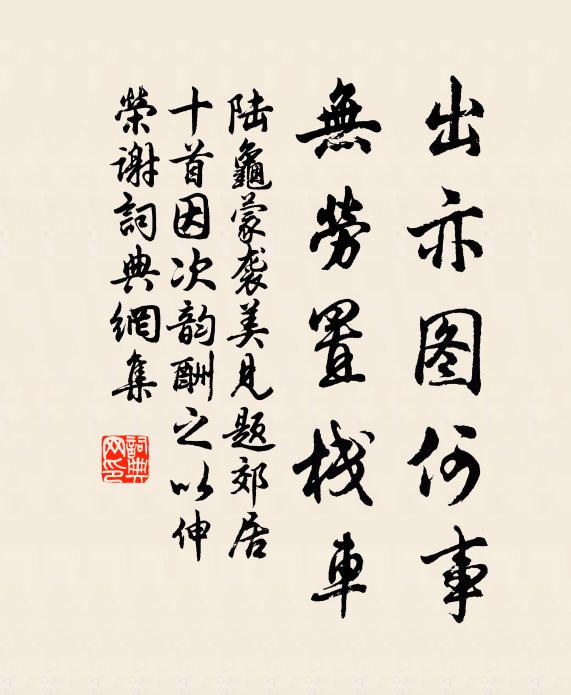 出亦图何事
無勞置棧車
陆龜蒙袭美見题郊居
十首因次韵酬之以伸
榮谢詞典網集
詞典网印